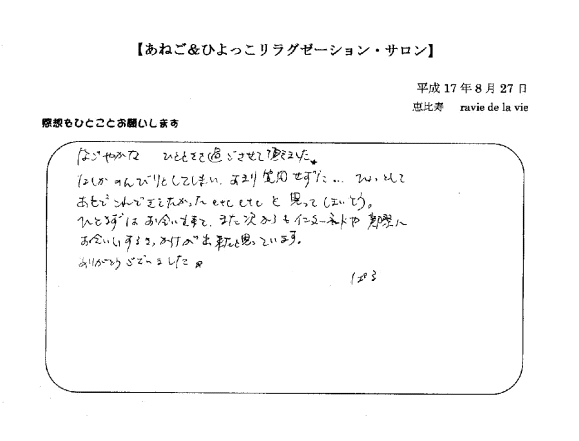 【あねご&ひよっこリラグゼーション・サロン】
平成17年8月27日
恵比寿 ravie de la vie
感想もひとことお願いします
なごやかな ひとときを過ごさせて頂きました。
のんびりとしてしまい、あまり質問せずに… ひょっとして
etc etc と思ってしまいそう。
ひとまずは お会い出来て、また次からもインターネットや 実際に
お会いするきっかけが出来たと思っています。
ありがとうございました。
ぱる